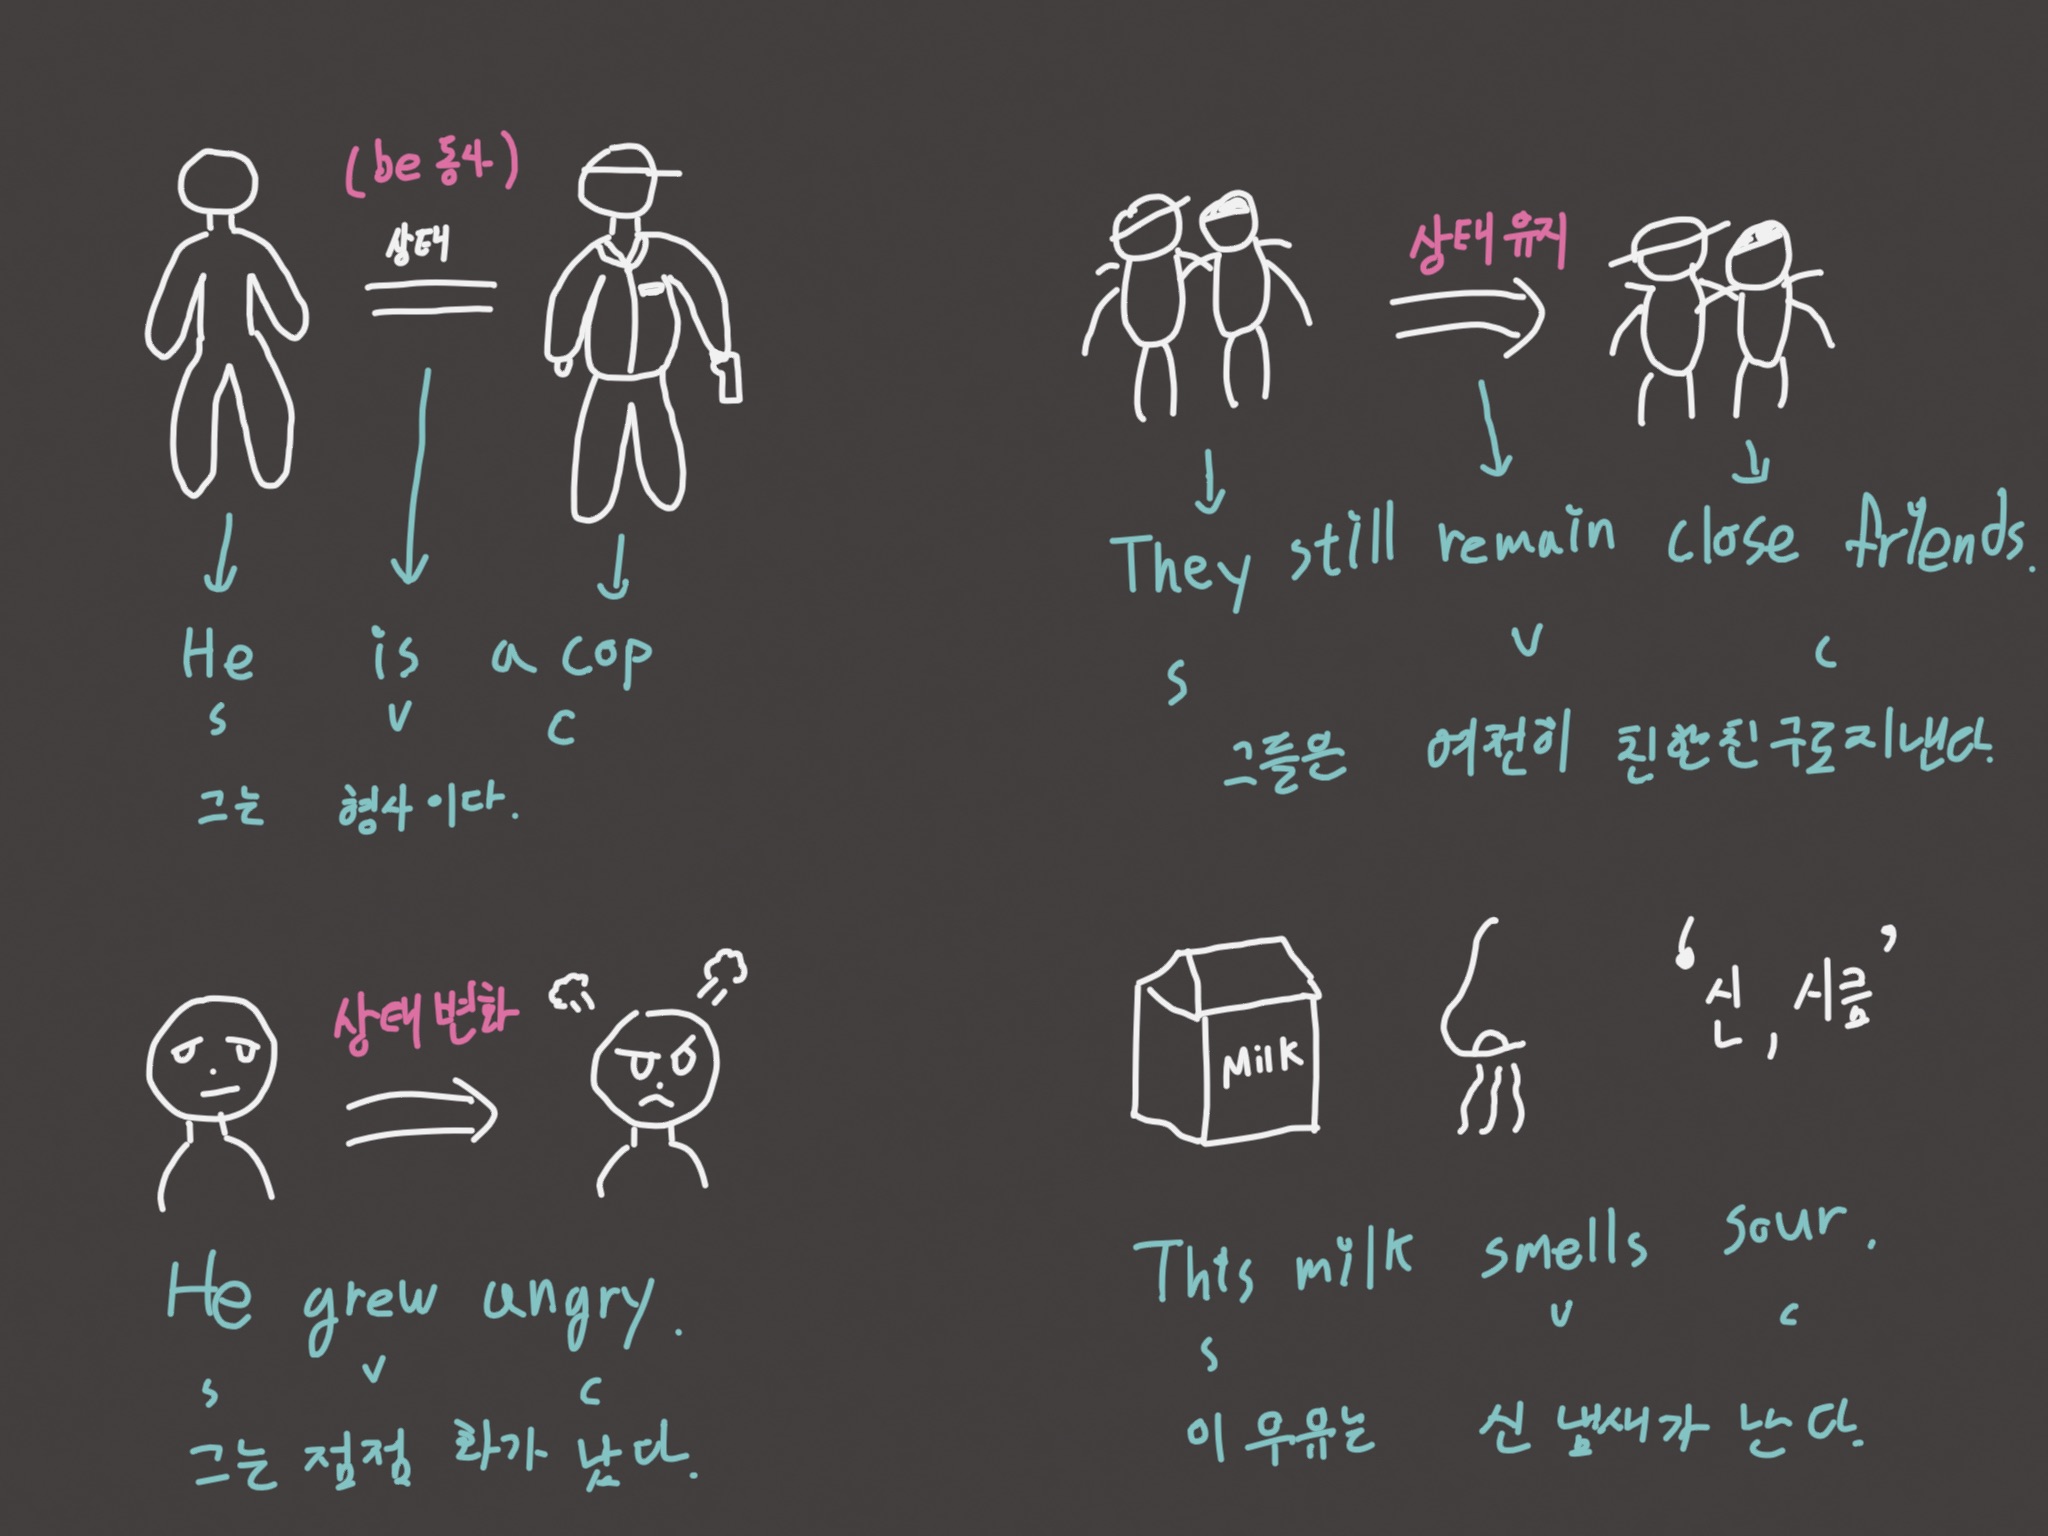 (be 동사)
상태
He is a cop
s v c
그는 형사이다.
상태 유지
They still remain close friends.
s v c
그들은 여전히 친한 친구로 지낸다.
상태 변화
He grew angry.
s v c
그는 점점 화가 났다.
Milk
‘신, 시큼’
This milk smells sour.
s v c
이 우유는 신 냄새가 난다.